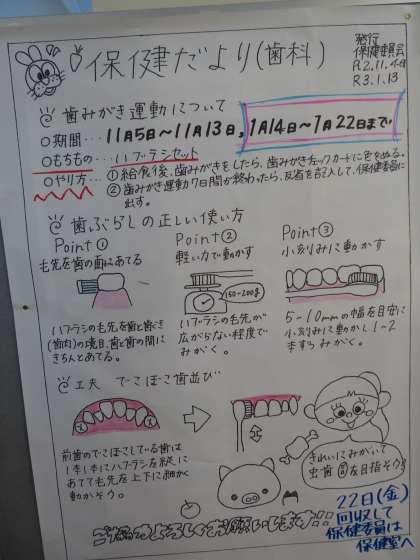 保健だより(歯科)
発行
保健委員会
R.2.11.4
R3.1.13
歯みがき運動について
○期間…11月5日〜11月13日,1月14日〜1月22日まで
○もちもの…ハブラシセット
○やり方…①給食後、歯みがきをしたら、歯みがきチェックカードに色をぬる。
②歯みがき運動7日間が終わったら、反省を記入して、保健委員に
出す。
歯ぶらしの正しい使い方
Point①
毛先を歯の面にあてる
ハブラシの毛先を歯と歯ぐき
(歯肉)の境目、歯と歯の間に
きちんとあてる。
Point②
軽い力で動かす
150-200g
ハブラシの毛先が
広がらない程度で
みがく。
Point③
小刻みに動かす
5-10mmの幅を目安に
小刻みに動かし1-2
本ずつみがく。
工夫 でこぼこ歯並び
前歯のでこぼこしている歯は
1本1本にハブラシを縦に
あてて毛先を上下に細か
動かそう。
きれいにみがいて
虫歯0を目指そう!
ご協力よろしくお願いします!!
22日(金)
回収して
保健委員は
保健室へ